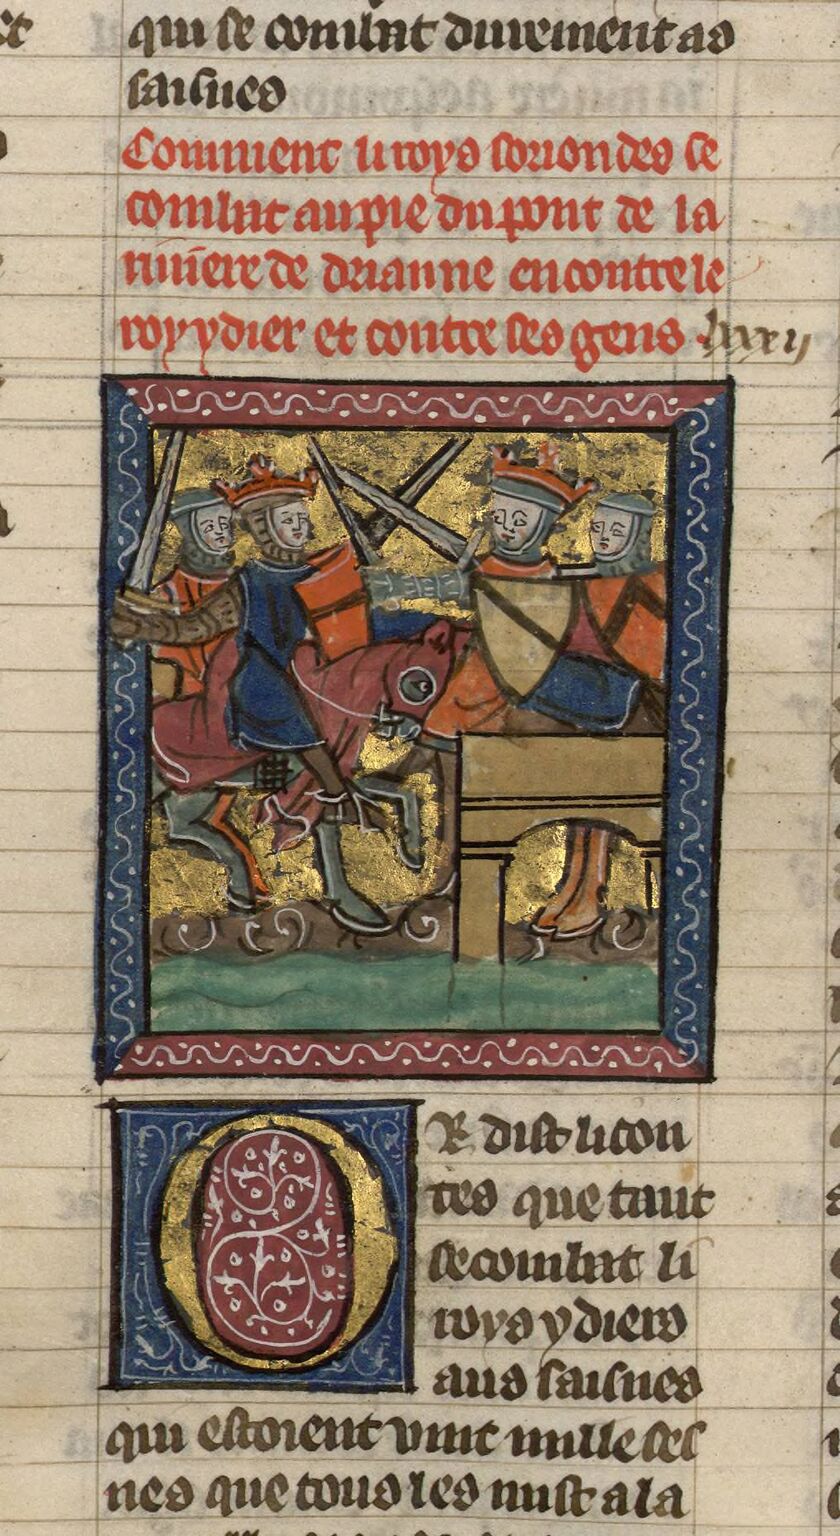 qui se combat durement as
saisnes
Comment li roys soriondes se
combat au pie du pont de la
riuiere de dianne encontre le
roy ydier et contre ses gens .lxxxij
OR dist li con
tes que tant
se combat li
roys ydiers
aus saisnes
qui estoient vint mille ses
nes que tous les mist a la